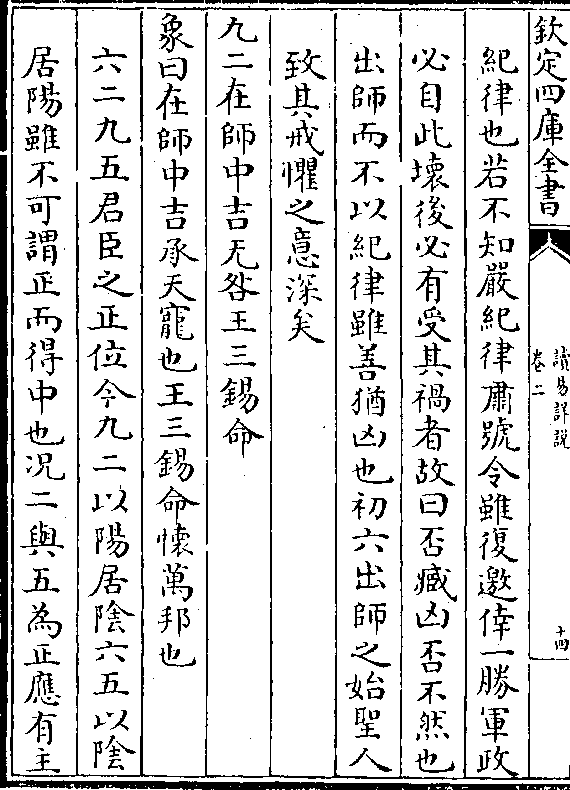 欽定四庫全書
讀易詳說
卷二
十四
紀律也若不知嚴紀律肅號令雖復邀倖一勝軍政
必自此壞後必有受其禍者故曰否臧凶否不然也
出師而不以紀律雖善猶凶也初六出師之始聖人
致其戒懼之意深矣
九二在師中吉无咎王三錫命
象曰在師中吉承天寵也王三錫命懷萬邦也
六二九五君臣之正位今九二以陽居陰六五以陰
居陽雖不可謂正而得中也況二與五為正應有主